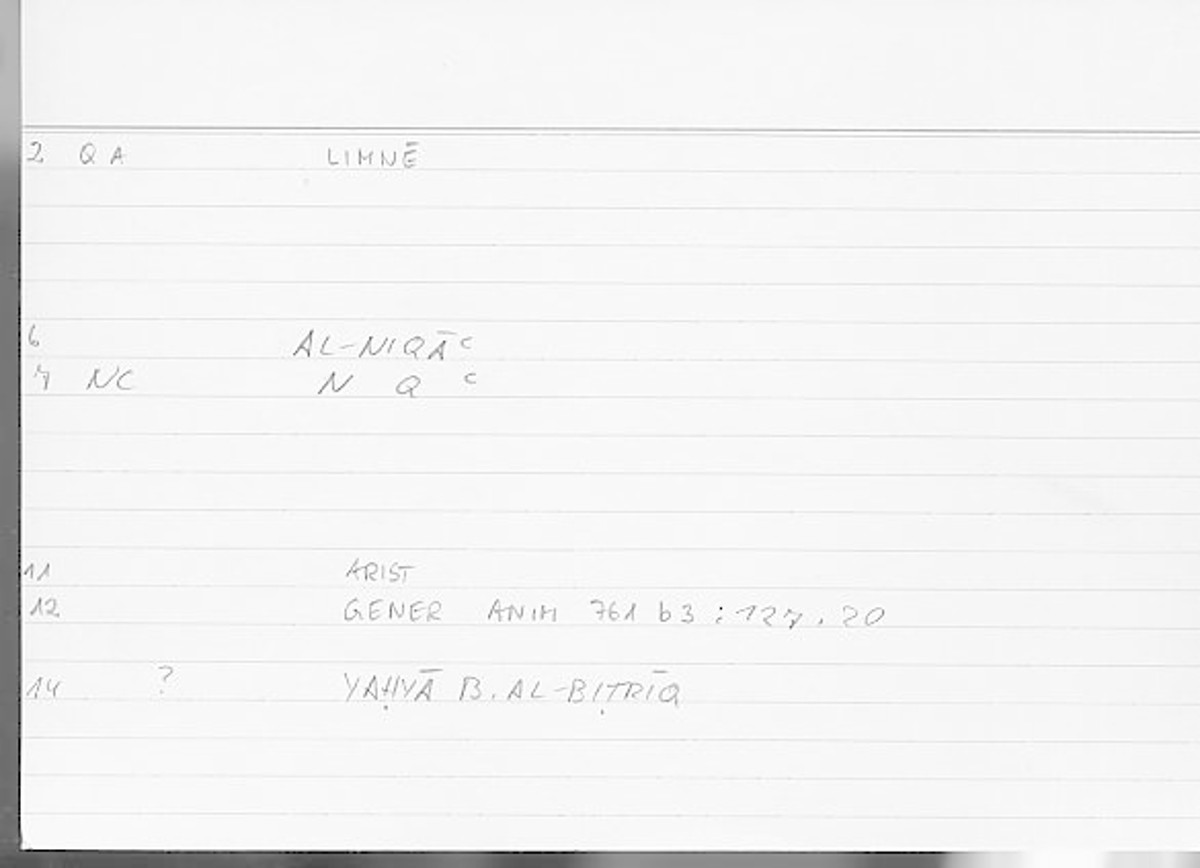 2 QA LIMNĒ
6 AL-NIQĀʿ
7 NC N Q ʿ
11 ARIST
12 GENER ANIM 761 b3 : 127.20
14 ? YAḤYĀ B. AL-BIṬRĪQ